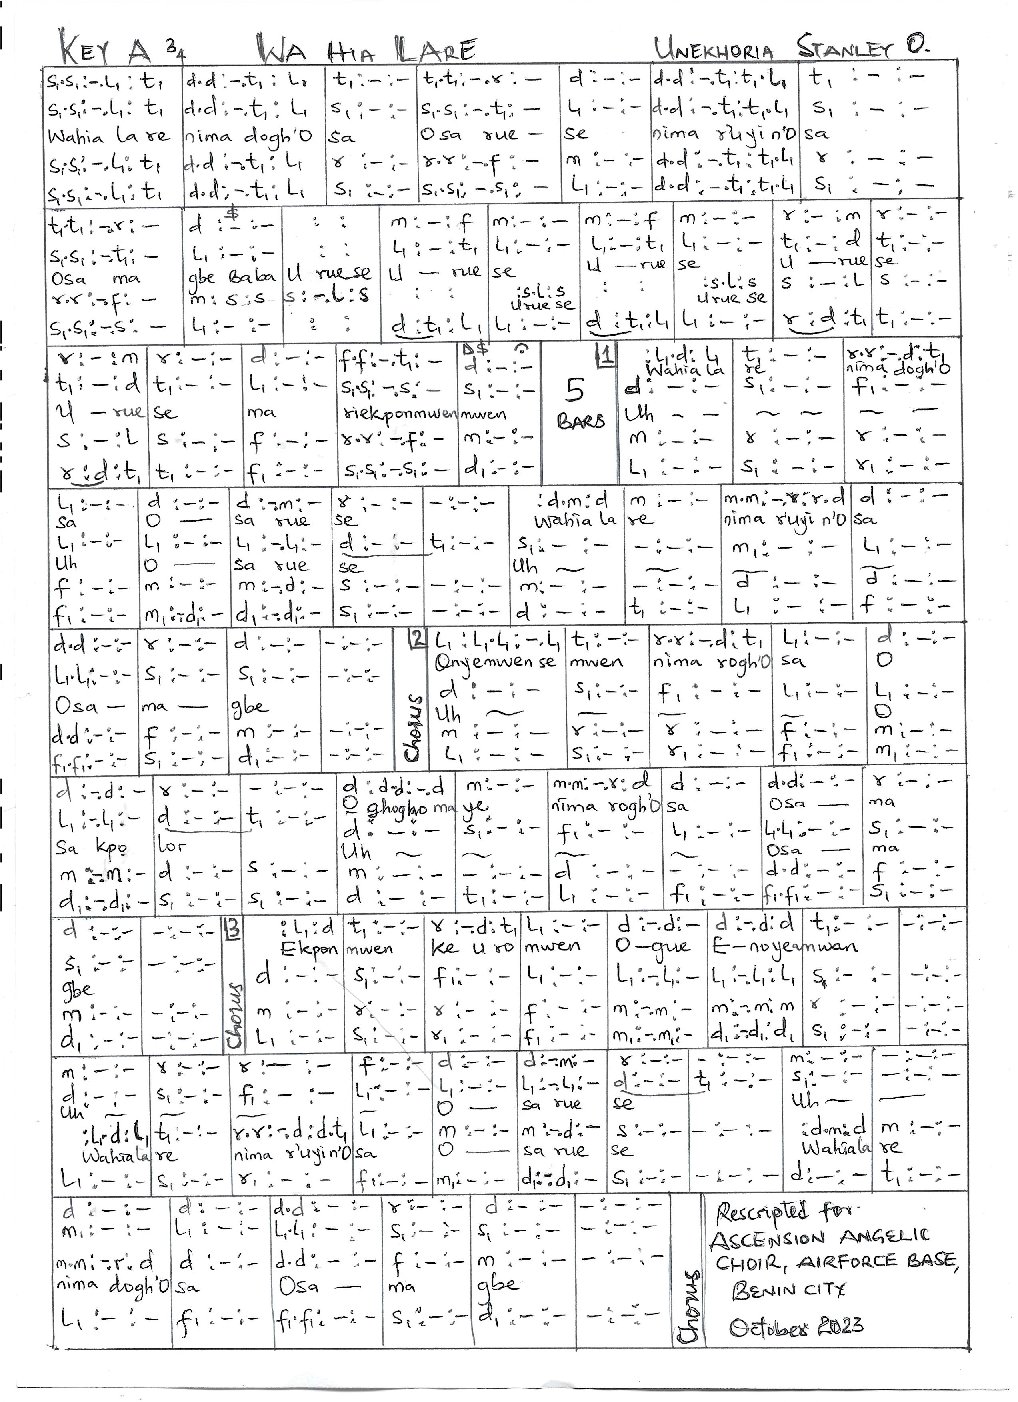 KEY A 3/4 WA HIA LARE UNEKHORIA STANLEY O.
s₁.s₁:-.l₁:t₁ d.d:-.t₁:l₁ t₁:-:- t₁.t₁:-.r:- d:-:- d.d:-.t₁:t₁.l₁ t₁:-:-
s₁.s₁:-.l₁:t₁ d.d:-.t₁:l₁ s₁:-:- s₁.s₁:-.t₁:- l₁:-:- d.d:-.t₁:t₁.l₁ s₁:-:-
Wahia la re nima dogh'O sa Osa rue - se nima r'uyi n'O sa
s₁.s₁:-.l₁:t₁ d.d:-.t₁:l₁ r:-:- r.r:-.f:- m:-:- d.d:-.t₁:t₁.l₁ r:-:-
s₁.s₁:-.l₁:t₁ d.d:-.t₁:l₁ s₁:-:- s₁.s₁:-.s₁:- l₁:-:- d.d:-.t₁:t₁.l₁ s₁:-:-
t₁.t₁:-.r:- d:-:- : : m:-:f m:-:- m:-:f m:-:- r:-:m r:-:-
s₁.s₁:-.t₁:- l₁:-:- : : l₁:-:t₁ l₁:-:- l₁:-:t₁ l₁:-:- t₁:-:d t₁:-:-
Osa ma gbe Baba U rue se U — rue se U — rue se U — rue se
r.r:-.f:- m:s:s s:-.l:s : : :s.l:s : : :s.l:s s:-:l s:-:-
U rue se U rue se
s₁.s₁:-.s₁:- l₁:-:- : : d:t₁:l₁ l₁:-:- d:t₁:l₁ l₁:-:- r:d:t₁ t₁:-:-
D$
r:-:m r:-:- d:-:- f.f:-.t₁:- d:-:- 5 BARS 1 :l₁.d:l₁ t₁:-:- r.r:-.d:t₁
Wahia la re nima dogh'O
t₁:-:d t₁:-:- l₁:-:- s₁.s₁:-.s₁:- s₁:-:- d:-:- s₁:-:- f₁:-:-
U — rue se ma riekponmwen mwen Uh
s:-:l s:-:- f:-:- r.r:-.f:- m:-:- m:-:- r:-:- r:-:-
r:d:t₁ t₁:-:- f₁:-:- s₁.s₁:-.s₁:- d₁:-:- l₁:-:- s₁:-:- r₁:-:-
l₁:-:- d:-:- d:-.m:- r:-:- -:-:- :d.m:d m:-:- m.m:-.r:r.d d:-:-
sa O — sa rue se Wahia la re nima r'uyi n'O sa
l₁:-:- l₁:-:- l₁:-.l₁:- d:-:- t₁:-:- s₁:-:- -:-:- m₁:-:- l₁:-:-
Uh O — sa rue se Uh
f:-:- m:-:- m:-.d:- s:-:- -:-:- m:-:- -:-:- d:-:- d:-:-
f₁:-:- m₁:-.d₁:- d₁:-.d₁:- s₁:-:- -:-:- d:-:- t₁:-:- l₁:-:- f:-:-
d.d:-:- r:-:- d:-:- -:-:- 2 l₁:l₁.l₁:-.l₁ t₁:-:- r.r:-.d:t₁ l₁:-:- d:-:-
Onyemwen se mwen nima rogh'O sa O
l₁.l₁:-:- s₁:-:- s₁:-:- -:-:- d:-:- s₁:-:- f₁:-:- l₁:-:- l₁:-:-
Osa — ma — gbe Chorus Uh O
d.d:-:- f:-:- m:-:- -:-:- m:-:- r:-:- r:-:- f:-:- m:-:-
f₁.f₁:-:- s₁:-:- d₁:-:- -:-:- l₁:-:- s₁:-:- r₁:-:- f₁:-:- m₁:-:-
d:-.d:- r:-:- -:-:- d:d.d:-.d m:-:- m.m:-.r:d d:-:- d.d:-:- r:-:-
O ghogho ma ye nima rogh'O sa Osa — ma
l₁:-.l₁:- d:-:- t₁:-:- d:-:- s₁:-:- f₁:-:- l₁:-:- l₁.l₁:-:- s₁:-:-
Sa kpo lor Uh Osa — ma
m:-.m:- d:-:- s:-:- m:-:- -:-:- d:-:- -:-:- d.d:-:- f:-:-
d₁:-.d₁:- s₁:-:- s₁:-:- d:-:- t₁:-:- l₁:-:- f₁:-:- f₁.f₁:-:- s₁:-:-
d:-:- -:-:- 3 :l₁:d t₁:-:- r:-.d:t₁ l₁:-:- d:-.d:- d:-.d:d t₁:-:- -:-:-
Ekpon mwen ke u ro mwen O-gue E-noyenmwan
s₁:-:- -:-:- d:-:- s₁:-:- f₁:-:- l₁:-:- l₁:-.l₁:- l₁:-.l₁:l₁ s₁:-:- -:-:-
gbe Chorus
m:-:- -:-:- m:-:- r:-:- r:-:- f:-:- m:-.m:- m:-.m:m r:-:- -:-:-
d₁:-:- -:-:- l₁:-:- s₁:-:- r₁:-:- f₁:-:- m₁:-.m₁:- d₁:-.d₁:d₁ s₁:-:- -:-:-
m:-:- r:-:- r:-:- f:-:- d:-:- d:-.m:- r:-:- -:-:- m:-:- -:-:-
d:-:- s₁:-:- f₁:-:- l₁:-:- l₁:-:- l₁:-.l₁:- d:-:- t₁:-:- s₁:-:- -:-:-
Uh O — sa rue se Uh —
:l₁.d:l₁ t₁:-:- r.r:-.d:d.t₁ l₁:-:- m:-:- m:-.d:- s:-:- -:-:- :d.m:d m:-:-
Wahia la re nima r'uyi n'O sa O — sa rue se Wahia la re
l₁:-:- s₁:-:- r₁:-:- f₁:-:- m₁:-:- d₁:-.d₁:- s₁:-:- -:-:- d:-:- t₁:-:-
d:-:- d:-:- d.d:-:- r:-:- d:-:- -:-:-
m₁:-:- l₁:-:- l₁.l₁:-:- s₁:-:- s₁:-:- -:-:-
m.m:-.r:d d:-:- d.d:-:- f:-:- m:-:- -:-:-
nima dogh'O sa Osa — ma gbe
l₁:-:- f₁:-:- f₁.f₁:-:- s₁:-:- d₁:-:- -:-:-
Chorus
Rescripted for
ASCENSION ANGELIC
CHOIR, AIRFORCE BASE,
BENIN CITY
October 2023